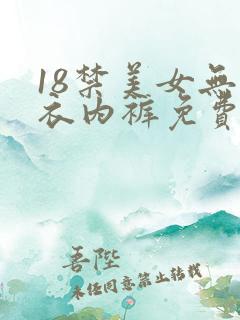 18禁美女無
衣内裤免費
吾陛
未任同意禁止转载